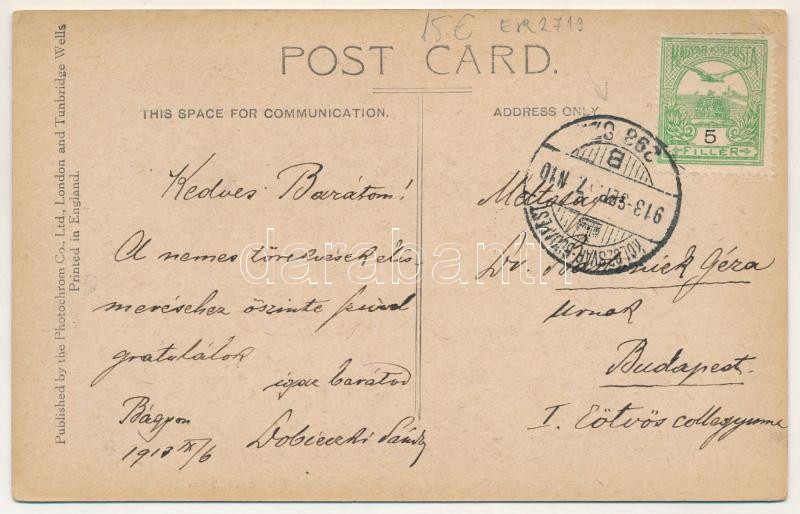 15.€ ER2719
POST CARD.
THIS SPACE FOR COMMUNICATION.
ADDRESS ONLY.
MAGYAR KIR POSTA
5
FILLÉR
KOLOZSVÁR-BUDAPEST
913-SEP.-7. N10
B
Kedves Barátom!
A nemes törekvések elis-
meréséhez őszinte szívvel
gratulálok
igaz barátod
Bágyon
Dobieczki Sándor
1913 IX/6
Dr. Géza
Urnak
Budapest.
I. Eötvös collegyium
Published by the Photochrom Co., Ltd., London and Tunbridge Wells
Printed in England.
darabanth